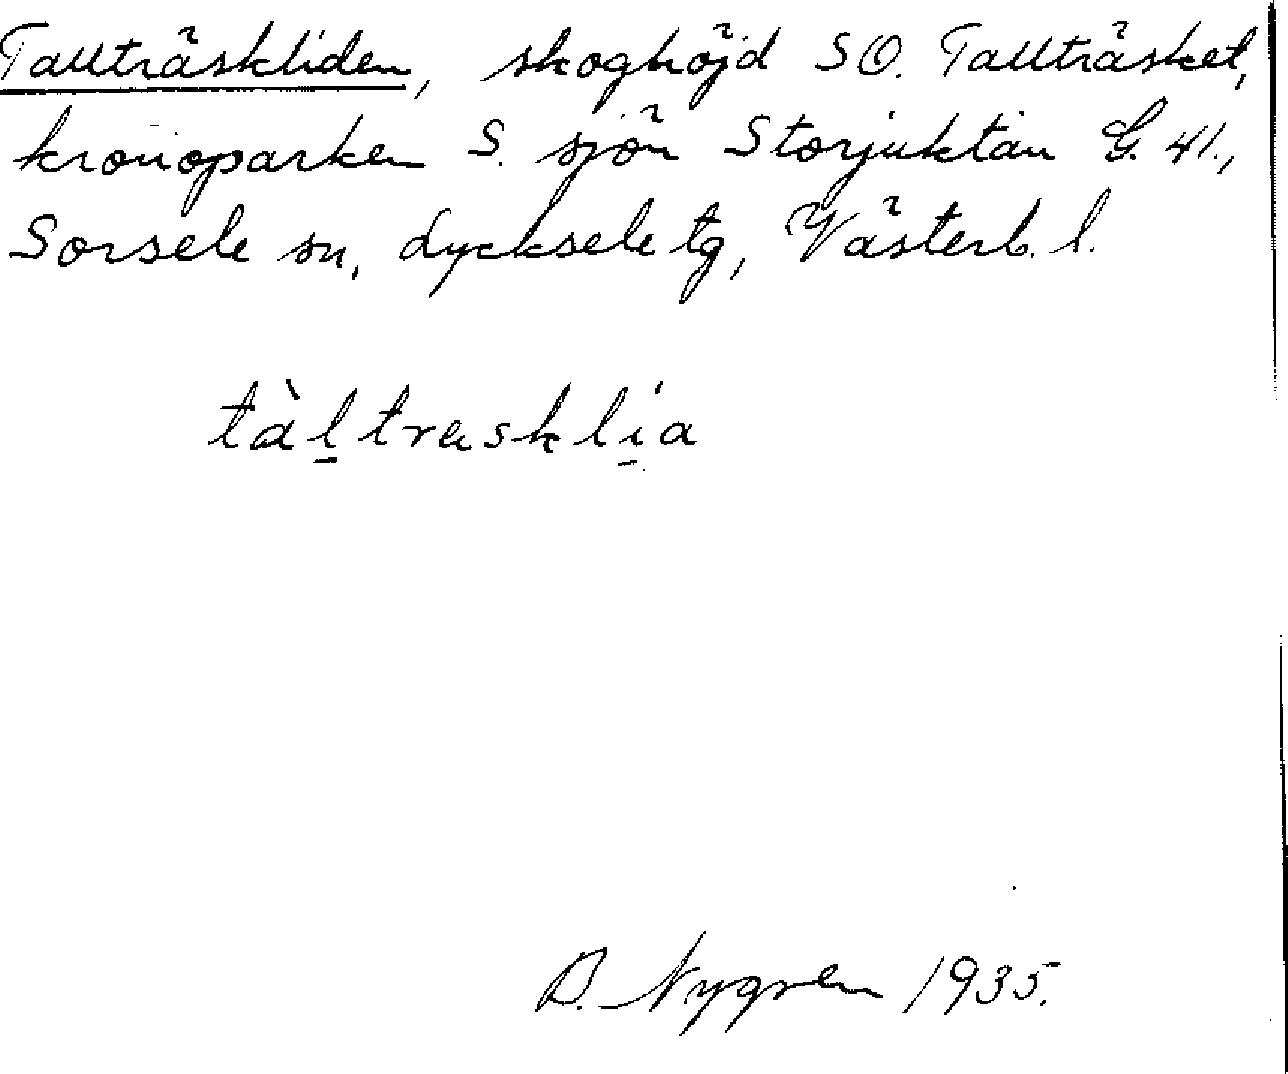 Tallträskliden, skoghöjd SO. Tallträsket,
kronoparken S. sjön Storjuktan G. 41.,
Sorsele sn, Lycksele tg, Västerb. l.
tàl̠traskli̠a
B. Nygren 1935.